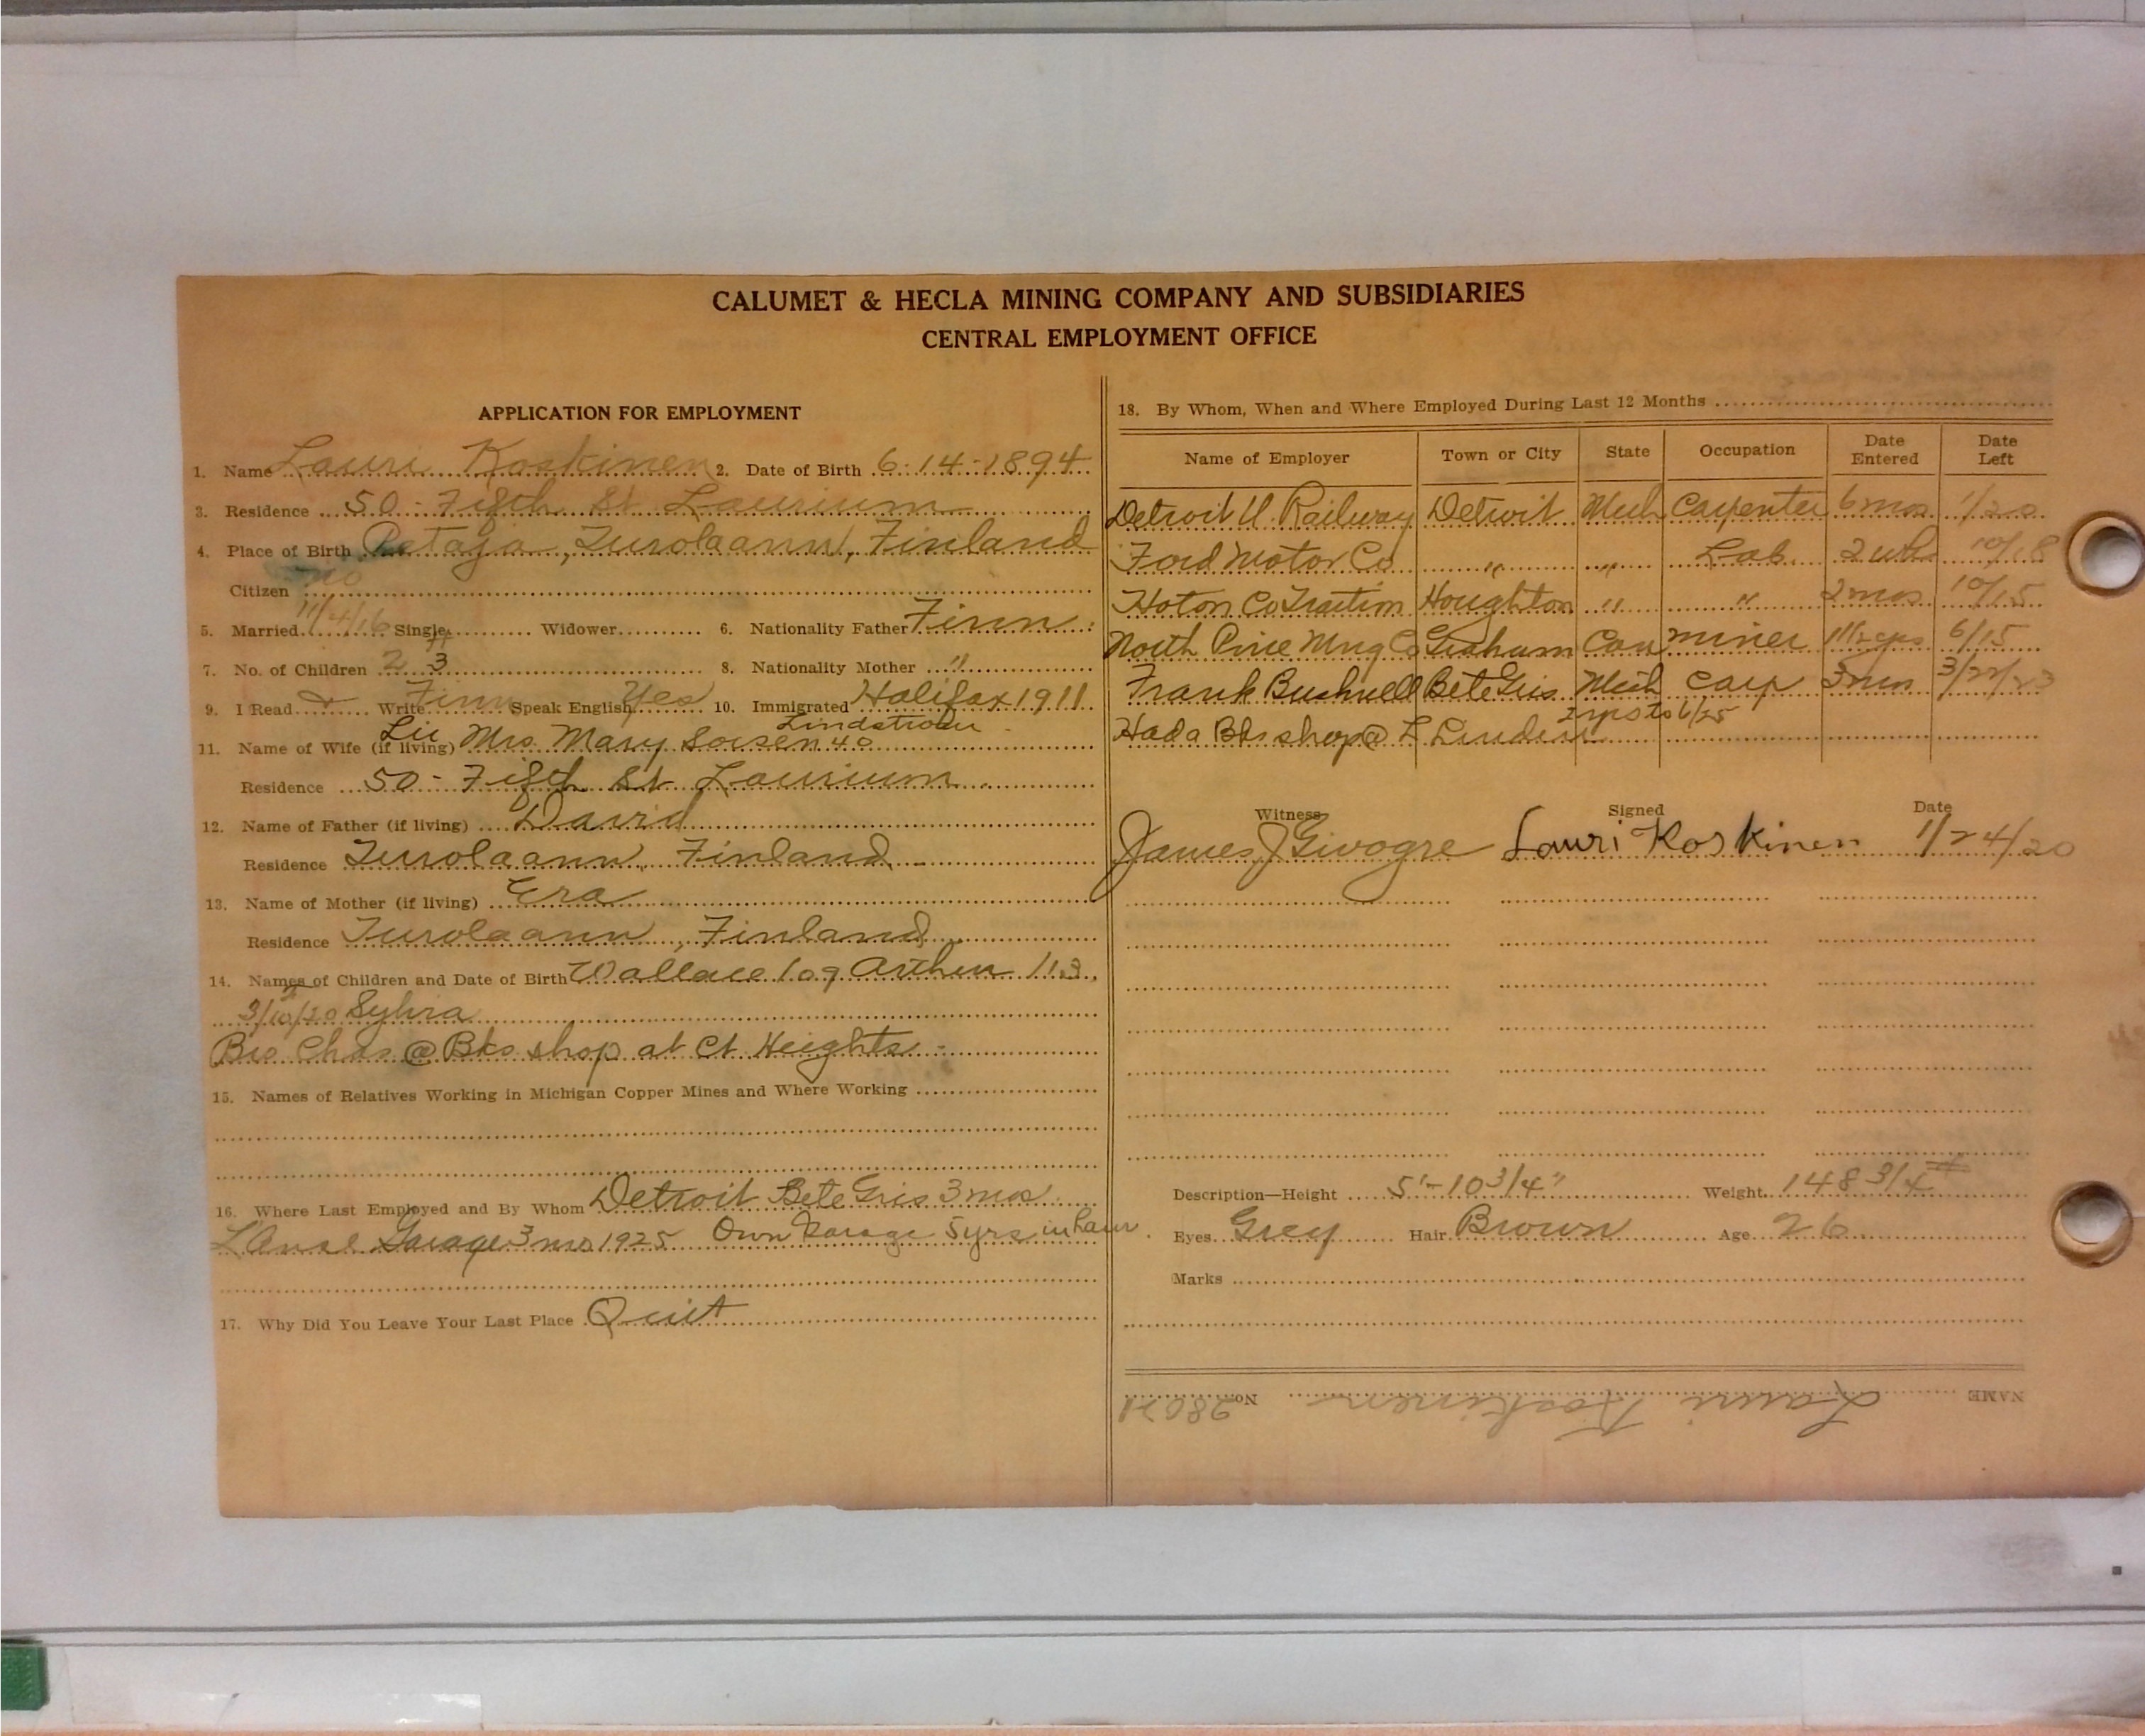 CALUMET & HECLA MINING COMPANY AND SUBSIDIARIES
CENTRAL EMPLOYMENT OFFICE
APPLICATION FOR EMPLOYMENT
1. Name Lauri Koskinen 2. Date of Birth 6-14-1894
3. Residence 50 - Fifth St Laurium
4. Place of Birth Finland
Citizen no
5. Married 11/4/16 Single Widower 6. Nationality Father Finn
7. No. of Children 2 3 8. Nationality Mother "
9. I Read & Write Finn Speak English Yes 10. Immigrated Halifax 1911
Lindstrom
11. Name of Wife (if living) Mrs Mary 40
Residence 50 - Fifth St Laurium
12. Name of Father (if living) David
Residence Finland
13. Name of Mother (if living) Era
Residence Finland
14. Names of Children and Date of Birth Wallace Arthur
Sylvia
Bro Chas @ Bks shop at Ct Heights
15. Names of Relatives Working in Michigan Copper Mines and Where Working
16. Where Last Employed and By Whom Detroit Bete Gris 3 mos
L'Anse Garage 3 mos 1925 Own Garage 5 yrs in
17. Why Did You Leave Your Last Place Quit
18. By Whom, When and Where Employed During Last 12 Months
Name of Employer Town or City State Occupation Date Entered Date Left
Detroit U. Railway Detroit Mich Carpenter 6 mos 1/20
Ford Motor Co " " Lab. 2 wks 10/18
Hoton Co Traction Houghton " " 2 mos 10/15
North Pine Mng Co Graham Can miner 1 1/2 yrs 6/15
Frank Bushnell Bete Gris Mich Carp 3 mos 3/22/23
to 6/25
Had a Bks shop @ L Linden
Witness Signed Date
James J Givogre Lauri Koskinen 1/24/20
Description—Height 5'-10 3/4" Weight 148 3/4 #
Eyes Grey Hair Brown Age 26
Marks
NAME Lauri Koskinen No.